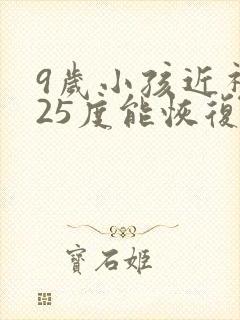 9歲小孩近視
25度能恢復
寶石姬